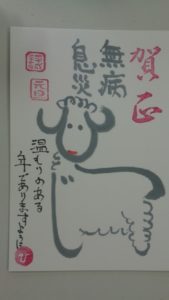 賀正
無病
息災
元旦
温もりのある
年でありますように
ひ